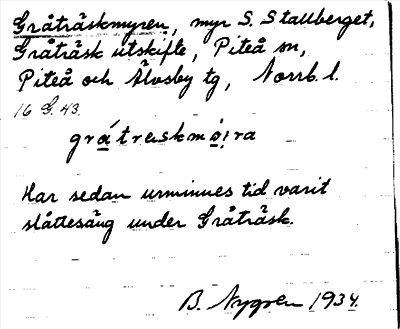 Gråträskmyren, myr S. Stallberget,
Gråträsk utskifte, Piteå sn,
Piteå och Älvsby tg, Norrb. l.
16 G. 43.
grátrɑskmọ́i̯ra
Har sedan urminnes tid varit
slåttesäng under Gråträsk.
B. Nygren 1934.